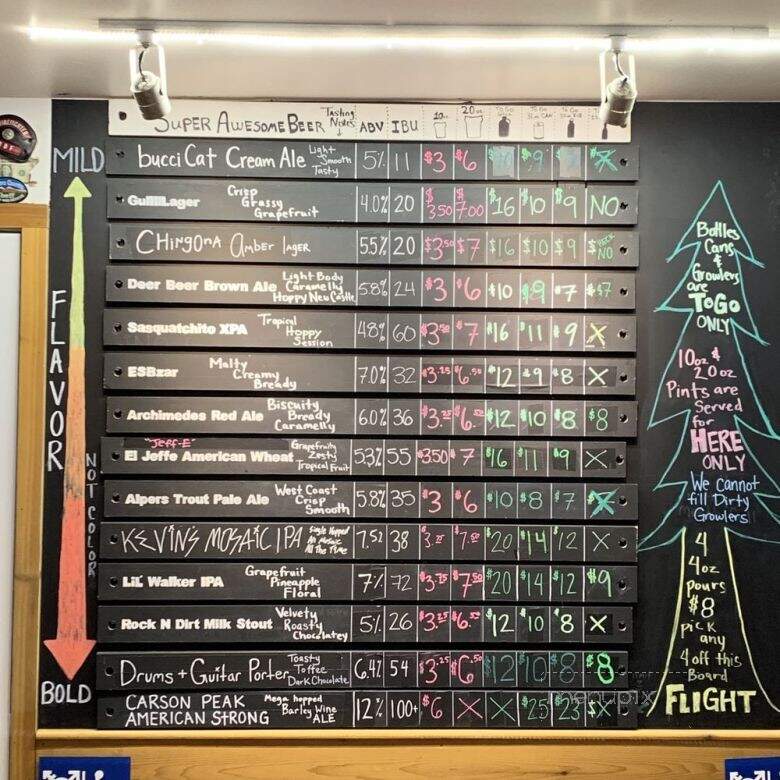 SUPER AWESOME BEER Tasting Notes ABV IBU 10oz 20oz
MILD
bucci Cat Cream Ale Light Smooth Tasty 5% 11 $3 $6 $9
GullLager Crisp Grassy Grapefruit 4.0% 20 $3.50 $7.00 $16 $10 $9 NO
CHINGONA Amber LAGER 5.5% 20 $3.50 $7 $16 $10 $9 NO
Deer Beer Brown Ale Light Body Caramelly Hoppy New Castle 5.8% 24 $3 $6 $10 $9 $7 $7
Sasquatchito XPA Tropical Hoppy Session 4.8% 60 $3.50 $7 $16 $11 $9 X
ESBzar Malty Creamy Bready 7.0% 32 $3.25 $6.50 $12 $9 $8 X
Archimedes Red Ale Biscuity Bready Caramelly 6.0% 36 $3.25 $6.50 $12 $10 $8 $8
"JEFF-E"
El Jeffe American Wheat Grapefruity Zesty Tropical Fruit 5.3% 55 $3.50 $7 $16 $11 $9 X
Alpers Trout Pale Ale West Coast Crisp Smooth 5.8% 35 $3 $6 $10 $8 $7 X
KEVIN'S MOSAIC IPA Single Hopped All Mosaic All The Time 7.5% 38 $7.50 $20 $14 $12 X
LiL' Walker IPA Grapefruit Pineapple Floral 7% 72 $3.75 $7.50 $20 $14 $12 $9
Rock N Dirt Milk Stout Velvety Roasty Chocolatey 5% 26 $3.25 $6.50 $12 $10 $8 X
DRUMS + Guitar Porter Toasty Toffee Dark Chocolate 6.4% 54 $3.25 $6.50 $12 $10 $8 $8
CARSON PEAK AMERICAN STRONG Mega hopped Barley Wine ALE 12% 100+ $6 X X $25 $23 X
BOLD
FLAVOR
NOT COLOR
Bottles
Cans
&
Growlers
are
TO GO
ONLY
10oz &
20oz
Pints are
Served
for
HERE
ONLY
We cannot
fill Dirty
Growlers
4
4oz
pours
$8
pick
any
4 off this
Board
FLIGHT
menupix